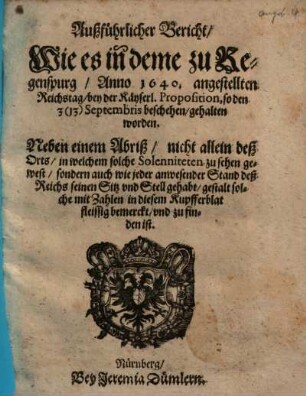 Außführlicher Bericht/
Wie es in deme zu Re-
genspurg / Anno 1640. angestellten
Reichstag / bey der Käyserl. Proposition, so den
3 (13) Septembris beschehen / gehalten
worden.
Neben einem Abriß / nicht allein deß
Orts / in welchem solche Solenniteten zu sehen ge-
west / sondern auch wie jeder anwesender Stand deß
Reichs seinen Sitz vnd Stell gehabt / gestalt sol-
che mit Zahlen in diesem Kupfferblat
fleissig bemerckt / vnd zu fin-
den ist.
Nürnberg /
Bey Jeremia Dümlern.